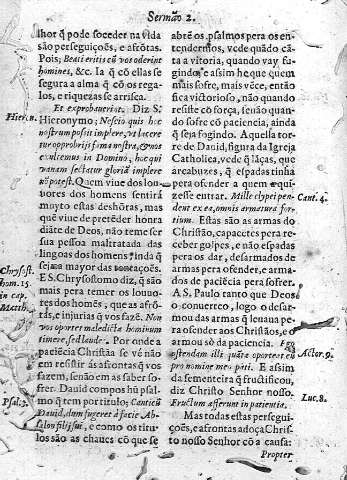 Sermão 2.
lhor q̃ pode soceder na vida
são perseguições, e afrõtas.
Pois; Beati eritis cũ vos oderint
homines, &c. Ia q̃ cõ ellas se
segura a alma q̃ cõ os rega-
los, e riquezas se arrisca.
Et exprobauerint. Diz S.
Hieronymo; Nescio quis hoc
nostrum possit implere, vt lacere
tur opprobrijs fama nostra, & nos
exultemus in Domino; hoc qui
vanam sectatur gloriã implere
nõ potest. Quem viue dos lou-
uores dos homens sentirà
muyto estas deshõras, mas
quẽ viue de pretẽder honra
diãte de Deos, não teme ser
sua pessoa maltratada das
lingoas dos homens, inda q̃
seja mayor das
E S. Chrysostomo diz, q̃ são
mais pera temer os louuo-
res dos homẽs, que as afrõ-
tas, e injurias q̃ vos fazẽ. Non
vos oportet maledicta hominum
timere, sed laudes. Por onde a
paciẽcia Christãa se vè não
em resistir às afrontas q̃ vos
fazem, senão em as saber so-
frer. Dauid compos hũ psal-
mo q̃ tem por titulo; Canticũ
Dauid, dum fugeret à facie Ab-
salon filij sui, e como os titu-
los são as chaues cõ que se
Hier. n.
Chrysost.
hom. 15
in cap.
Matth.
Psal. 3.
abrẽ os psalmos pera os en-
tendermos, vede quãdo cã-
ta a vitoria, quando vay fu-
gindo; e assim he que quem
mais sofre, mais vẽce, entaõ
fica victorioso, não quando
resiste cõ força, senão quan-
do sofre cõ paciencia, ainda
q̃ seja fogindo. Aquella tor-
re de Dauid, figura da Igreja
Catholica, vede q̃ lãças, que
arcabuzes, q̃ espadas tinha
pera ofender a quem a qui-
zesse entrar. Mille clypei pen-
dent ex ea, omnis armatura for-
tium. Estas são as armas do
Christão, capacetes pera re-
ceber golpes, e não espadas
pera os dar, desarmados de
armas pera ofender, e arma-
dos de paciẽcia pera sofrer.
A S. Paulo tanto que Deos
o conuerteo, logo o desar-
mou das armas q̃ leuaua pe-
ra ofender aos Christãos, e o
armou sò da paciencia. Ego
ostendam illi quãta oporteat eũ
pro nomine meo pati. E assim
da sementeira q̃ fructificou,
diz Christo Senhor nosso.
Fructum afferunt in patientia.
Mas todas estas persegui-
ções, e afrontas adoça Chris-
to nosso Senhor cõ a causa:
Propter
Cant. 4.
Actor. 9.
Luc. 8.